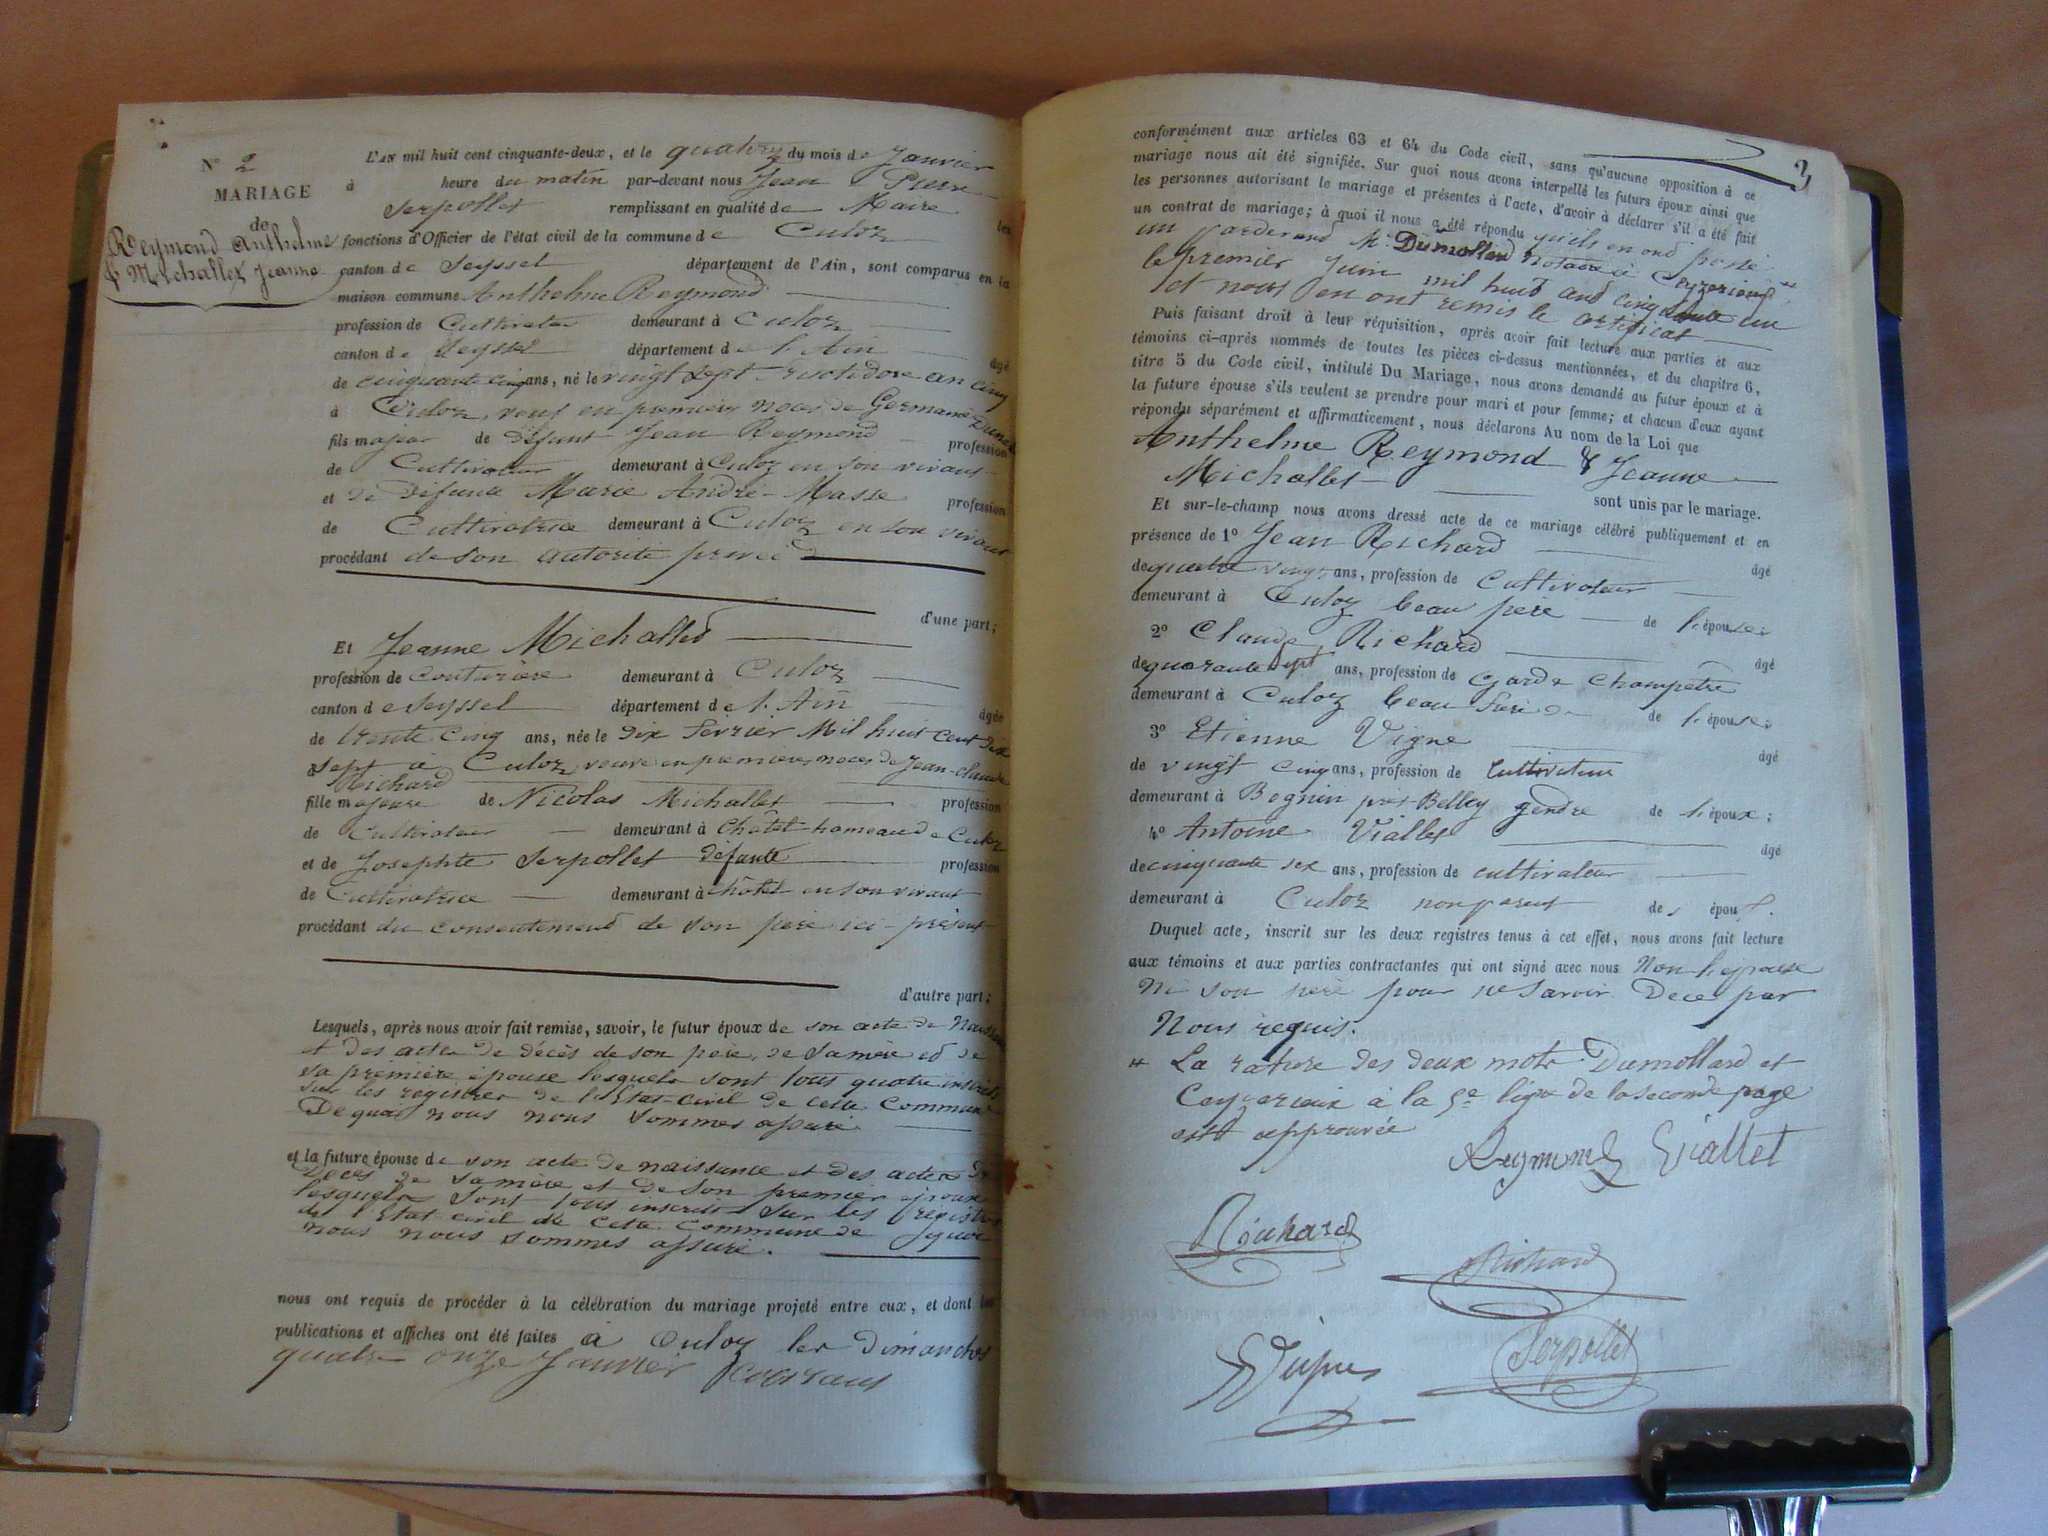 N° 2
MARIAGE
de
Reymond Anthelme
& Michallet Jeanne
L'AN mil huit cent cinquante-deux, et le quatorze du mois de Janvier
à heure du matin par-devant nous Jean Pierre
Serpollet remplissant en qualité de Maire les
fonctions d'Officier de l'état civil de la commune de Culoz
canton de Seyssel département de l'Ain, sont comparus en la
maison commune Anthelme Reymond
profession de Cultivateur demeurant à Culoz
canton de Seyssel département de l'Ain âgé
de cinquante cinq ans, né le vingt sept fructidore an cinq
à Culoz, veuf en premières noces de Germaine
fils majeur de défunt Jean Reymond profession
de Cultivateur demeurant à Culoz en son vivant
et de défunte Marie André-Masse profession
de Cultivatrice demeurant à Culoz en son vivant
procédant de son autorité privée
d'une part;
Et Jeanne Michallet
profession de couturière demeurant à Culoz
canton de Seyssel département de l'Ain âgée
de trente cinq ans, née le dix février Mil huit cent dix
sept à Culoz, veuve en premières noces de Jean-claude
Richard
fille majeure de Nicolas Michallet profession
de Cultivateur demeurant à Châtel hameau de Culoz
et de Josephte Serpollet défunte profession
de Cultivatrice demeurant à châtel en son vivant
procédant du consentement de son père ici-présent
d'autre part;
Lesquels, après nous avoir fait remise, savoir, le futur époux de son acte de Naissance
et des actes de décès de son père, de sa mère et de
sa première épouse lesquels sont tous quatre inscrits
sur les registres de l'Etat-civil de cette Commune
De quoi nous nous sommes assuré
et la future épouse de son acte de naissance et des actes de
Décès de sa mère et de son premier époux
lesquels sont tous inscrits sur les registres
de l'Etat civil de cette Commune de quoi
nous nous sommes assuré.
nous ont requis de procéder à la célébration du mariage projeté entre eux, et dont les
publications et affiches ont été faites à Culoz les Dimanches
quatre onze Janvier
3
conformément aux articles 63 et 64 du Code civil, sans qu'aucune opposition à ce
mariage nous ait été signifiée. Sur quoi nous avons interpellé les futurs époux ainsi que
les personnes autorisant le mariage et présentes à l'acte, d'avoir à déclarer s'il a été fait
un contrat de mariage; à quoi il nous a été répondu qu'ils en ont passé
un Me Dumollard notaire à Ceyzerieux
le premier Juin mil huit cent cinquante un
et nous en ont remis le certificat
Puis faisant droit à leur réquisition, après avoir fait lecture aux parties et aux
témoins ci-après nommés de toutes les pièces ci-dessus mentionnées, et du chapitre 6,
titre 5 du Code civil, intitulé Du Mariage, nous avons demandé au futur époux et à
la future épouse s'ils veulent se prendre pour mari et pour femme; et chacun d'eux ayant
répondu séparément et affirmativement, nous déclarons Au nom de la Loi que
Anthelme Reymond & Jeanne
Michallet sont unis par le mariage.
Et sur-le-champ nous avons dressé acte de ce mariage célébré publiquement et en
présence de 1° Jean Richard âgé
de quatre vingt ans, profession de Cultivateur
demeurant à Culoz beau père de l'épouse;
2° Claude Richard âgé
de quarante sept ans, profession de Garde Champêtre
demeurant à Culoz beau frère de l'épouse;
3° Etienne Vigne âgé
de vingt cinq ans, profession de Cultivateur
demeurant à Bognin près Belley gendre de l'époux;
4° Antoine Viallet âgé
de cinquante six ans, profession de cultivateur
demeurant à Culoz non parent des époux.
Duquel acte, inscrit sur les deux registres tenus à cet effet, nous avons fait lecture
aux témoins et aux parties contractantes qui ont signé avec nous Non l'épouse
Ni son père pour ne savoir De ce par
Nous requis.
La rature des deux mots Dumollard et
Ceyzerieux à la 5e ligne de la seconde page
est approuvée
Reymond Viallet
Richard
Richard
Serpollet